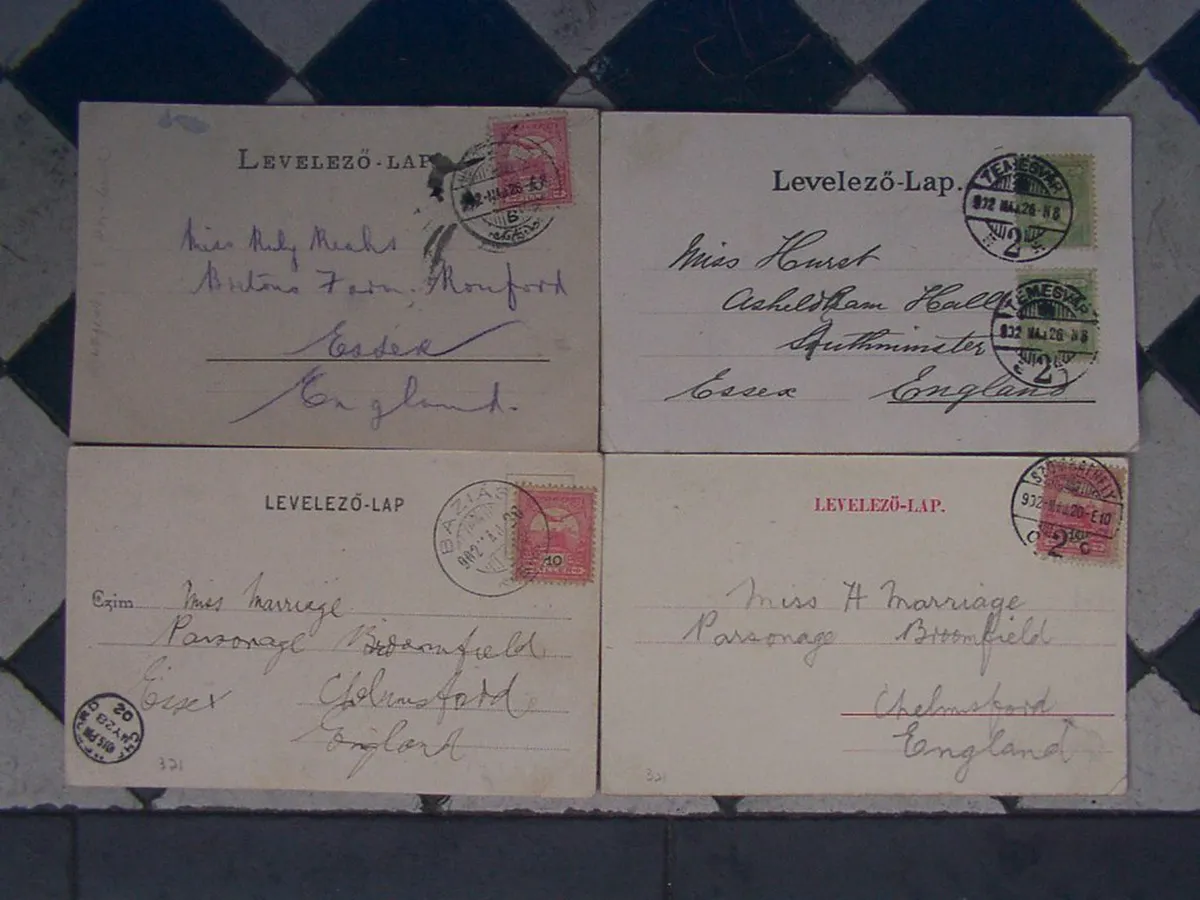 LEVELEZŐ-LAP
902
26
6
Miss
Farm, Romford
Essex
England.
Levelező-Lap.
TEMESVÁR
902 MÁJ 26 N8
2
TEMESVÁR
902 MÁJ 26 N8
2
Miss Hurst
Asheldham Hall
Southminster
Essex England
LEVELEZŐ-LAP
BAZIÁS
902
10
Czim Miss Marriage
Parsonage Broomfield
Essex Chelmsford
England
CHELMSFORD
MY 28
02
321
LEVELEZŐ-LAP.
SZOMBATHELY
902 MÁJ 20 E10
2
10
Miss H Marriage
Parsonage Broomfield
Chelmsford
England
321